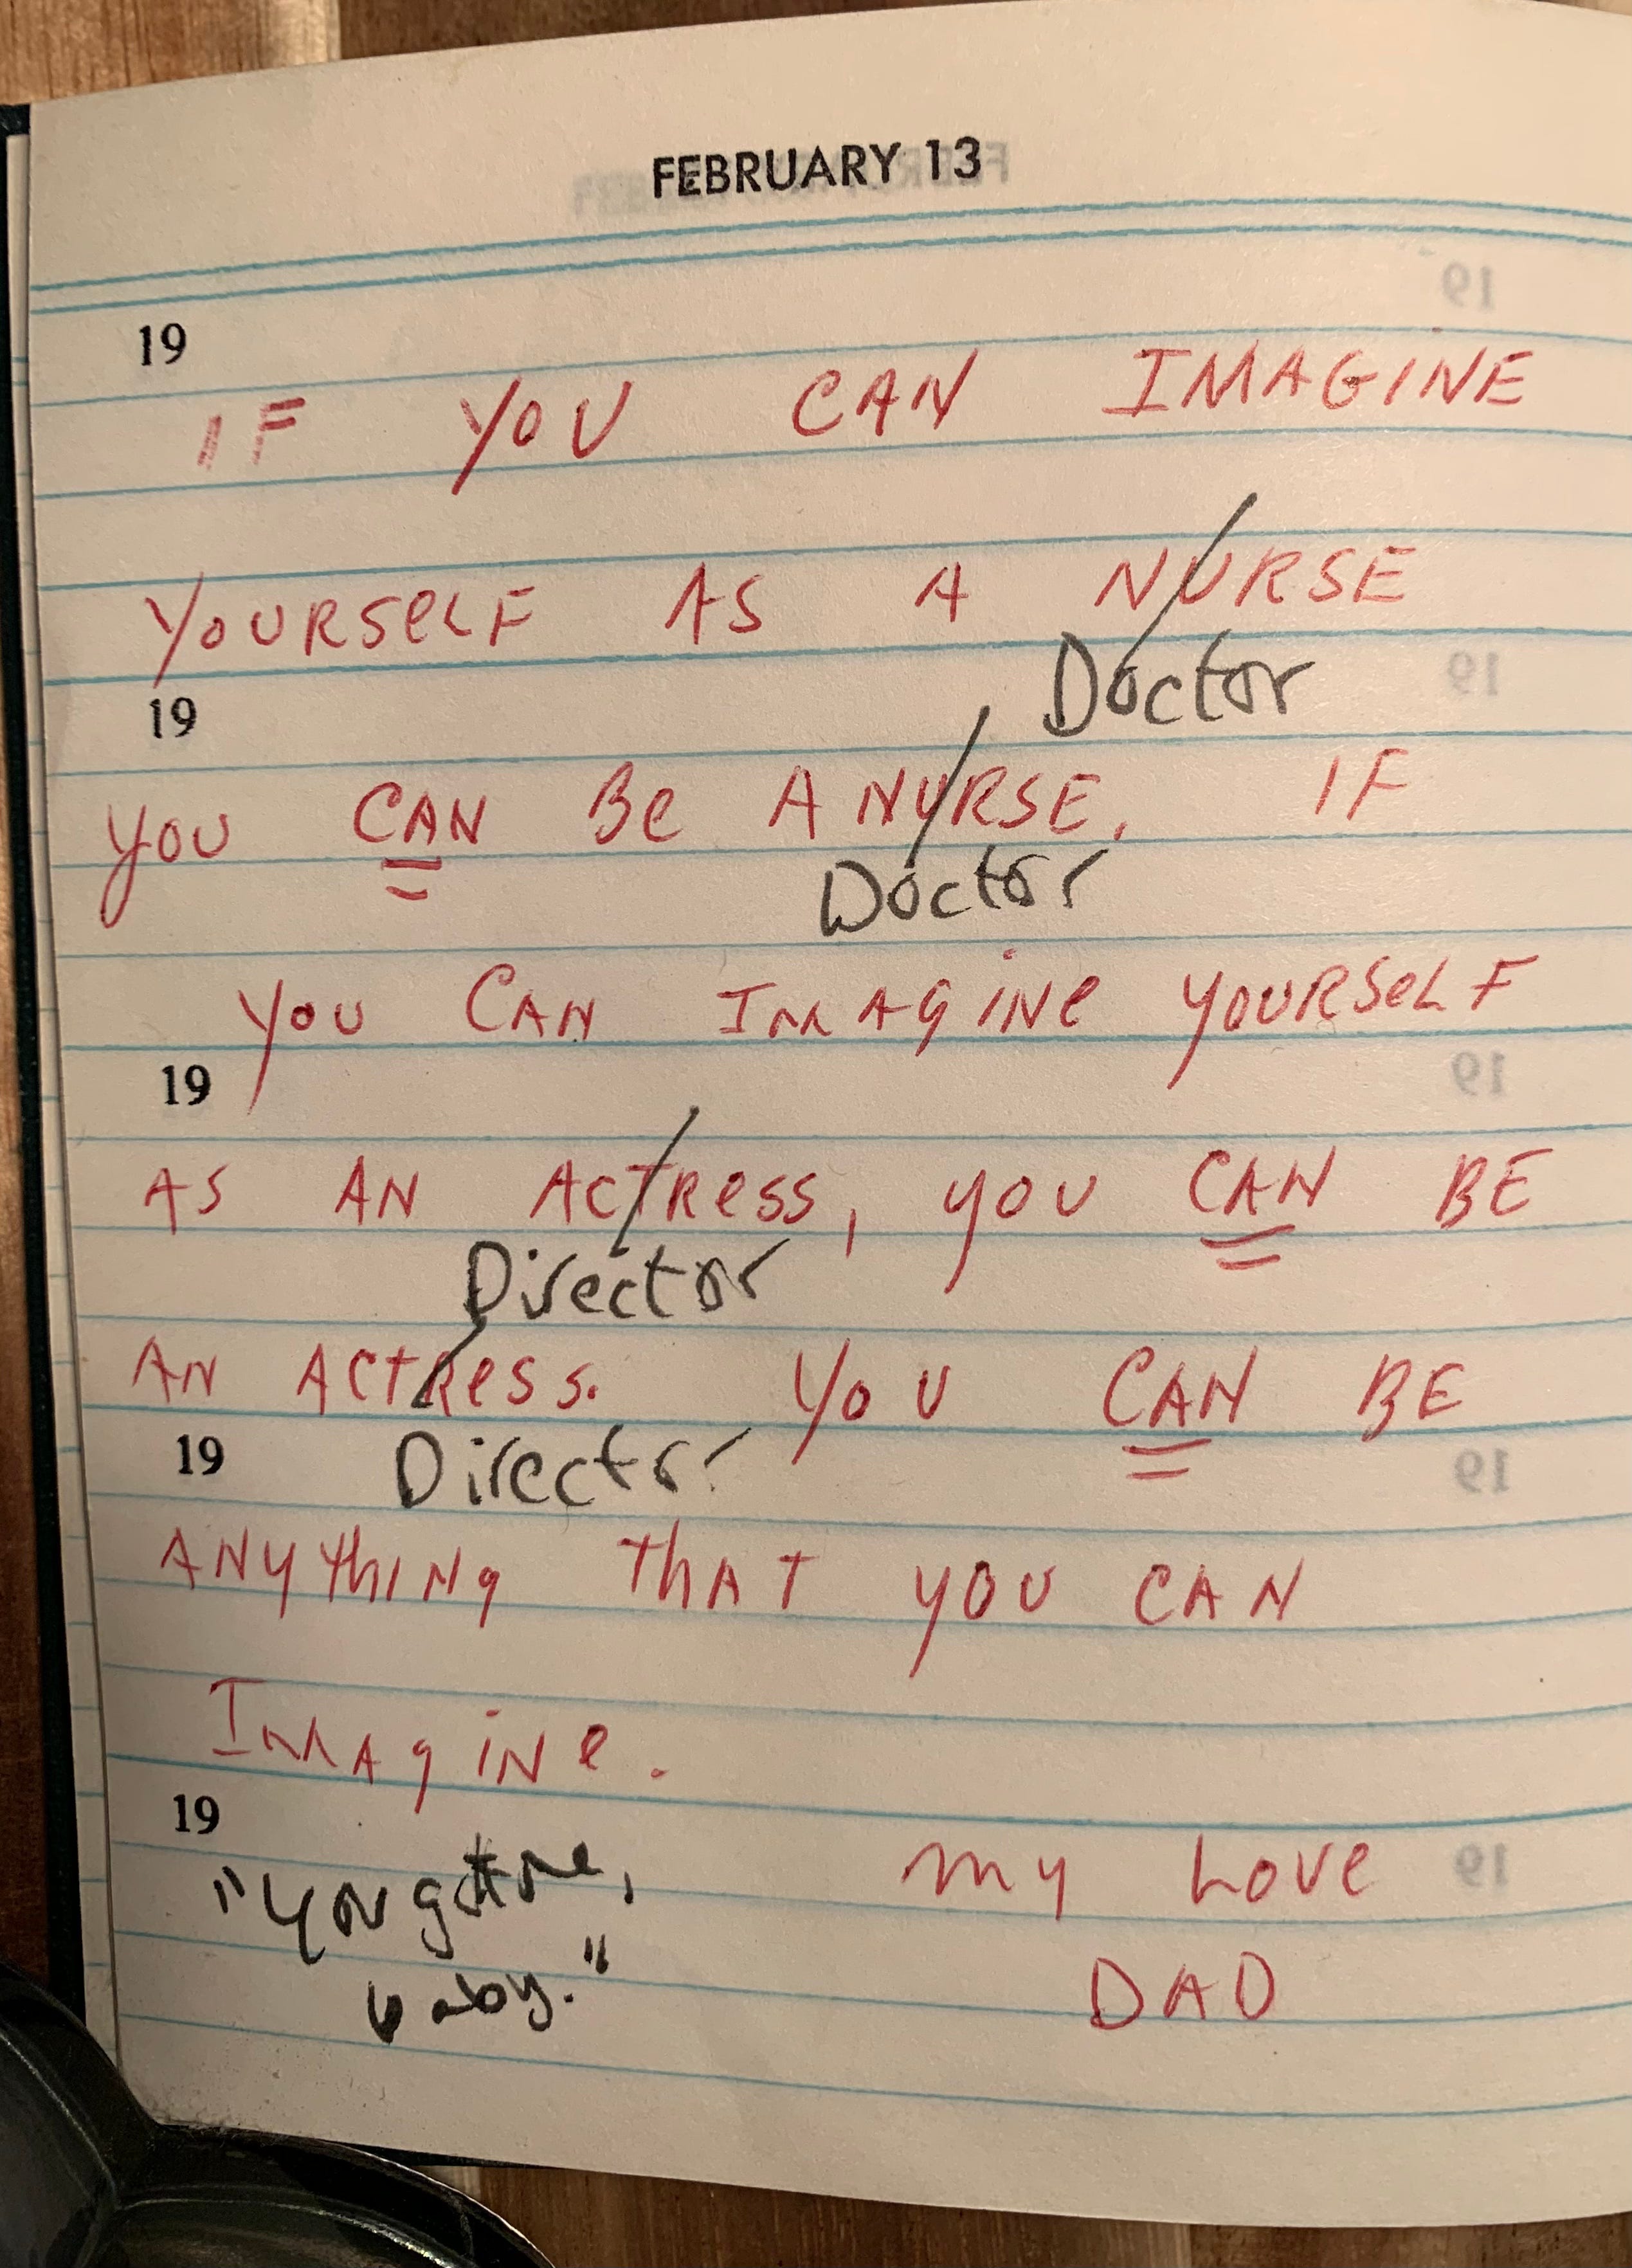 FEBRUARY 13
19
IF YOU CAN IMAGINE
YOURSELF AS A NURSE
Doctor
19
YOU CAN Be A NURSE. IF
Doctor
YOU CAN IMAgiNe YOURSeLF
19
AS AN ACTRess, YOU CAN BE
Director
AN ACTRess. YOU CAN BE
19
Director
ANYthiNg ThAT YOU CAN
IMAgiNe.
19
"You got me, my Love
baby."
DAD